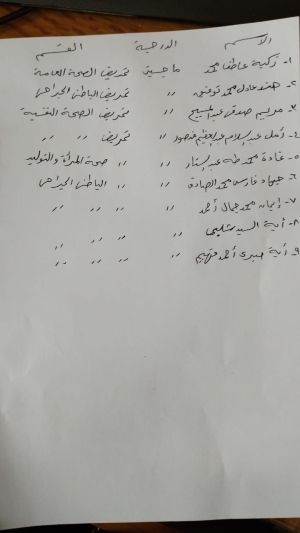 الاسم الدرجة القسم
١- زكية عاطف محمد ماجستير تمريض الصحة العامة
٢- هند عادل محمد توفيق ,, تمريض الباطنى الجراحى
٣- مريم صدقى عبد المسيح ,, تمريض الصحة النفسية
٤- أمل عبد السلام عبد العظيم منصور ,, تمريض ,, ,,
٥- غادة محمد طه عبد الستار ,, ,, صحة المرأة والتوليد
٦- جهاد فارس محمد ,, ,, الباطنى الجراحى
٧- إيمان محمد جمال أحمد ,, ,, ,, ,,
٨- أية السيد ,, ,, ,, ,,
٩- أية صبرى أحمد ,, ,, ,, ,,